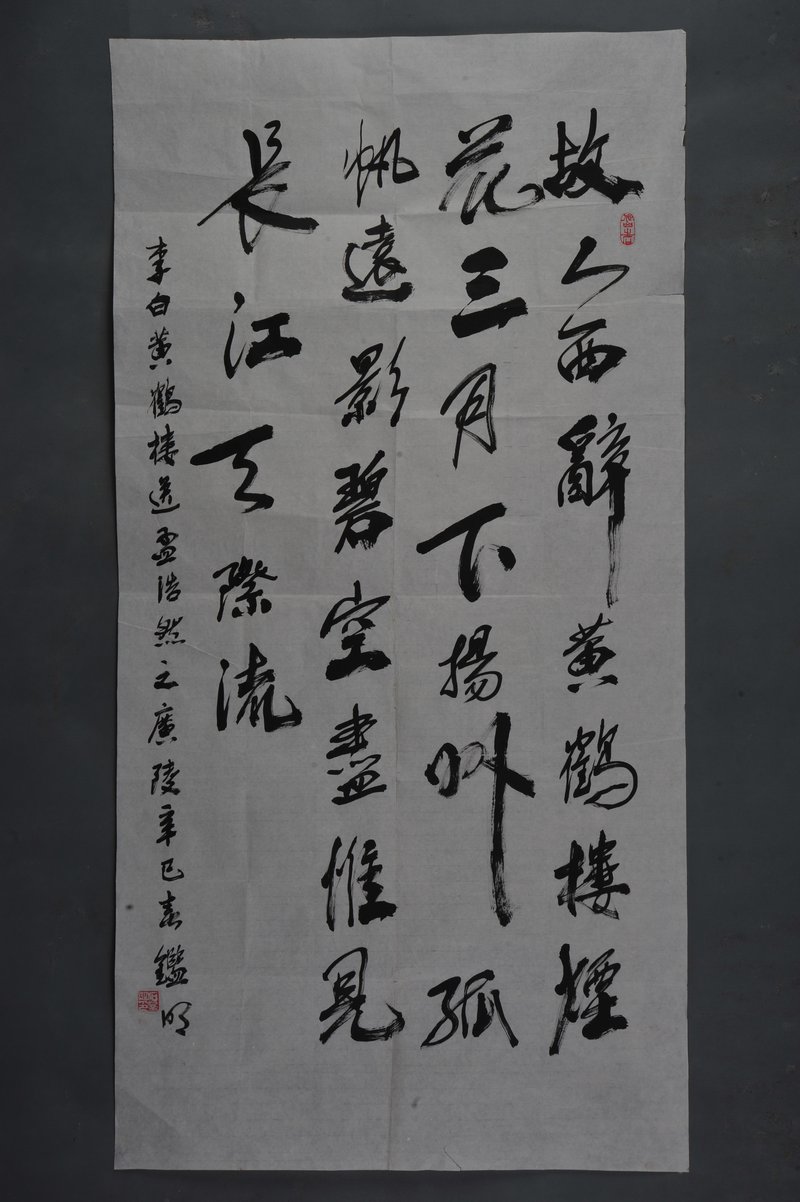 故人西辭黄鶴樓煙
花三月下揚州孤
帆遠影碧空盡惟見
長江天際流
李白黄鶴樓送孟浩然之廣陵辛巳春鑑明